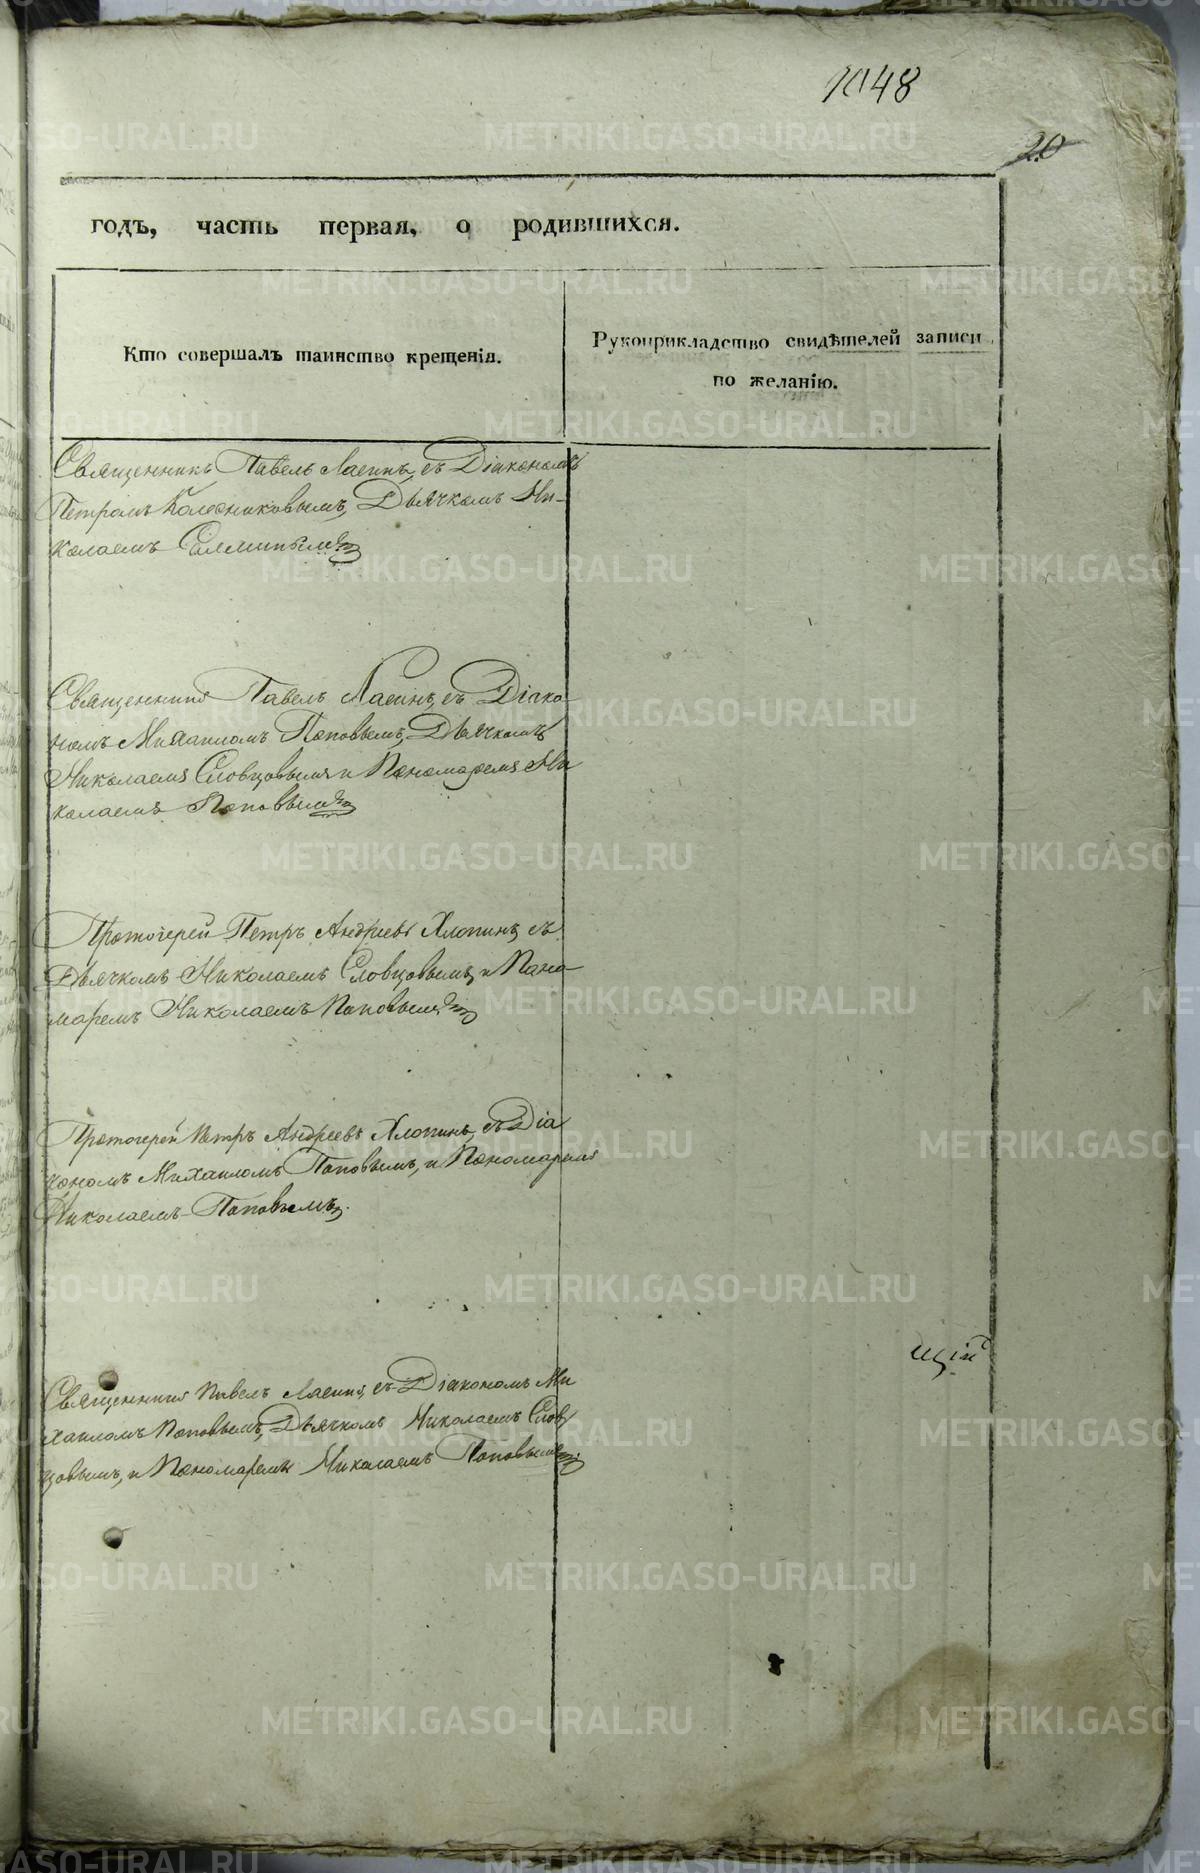 1048
20
годъ, часть первая, о родившихся.
Кто совершалъ таинство крещенія.
Рукоприкладство свидѣтелей записи
по желанію.
Священникъ Павелъ Ласинъ, съ Діакономъ
Петромъ Колесниковымъ, Дьячкомъ Ни-
колаемъ
Священникъ Павелъ Ласинъ, съ Діако-
номъ Михаиломъ Поповымъ, Дьячкомъ
Николаемъ Словцовымъ и Пономаремъ Ни
колаемъ Поповымъ
Протоіерей Петръ Андреевъ Хлопинъ, съ
Дьячкомъ Николаемъ Словцовымъ, и Поно-
маремъ Николаемъ Поповымъ
Протоіерей Петръ Андреевъ Хлопинъ, съ Діа
кономъ Михаиломъ Поповымъ, и Пономаремъ
Николаемъ Поповымъ.
щій
Священникъ Павелъ Ласинъ, съ Діакономъ Ми
хаиломъ Поповымъ, Дьячкомъ Николаемъ Слов
цовымъ, и Пономаремъ Николаемъ Поповымъ
METRIKI.GASO-URAL.RU